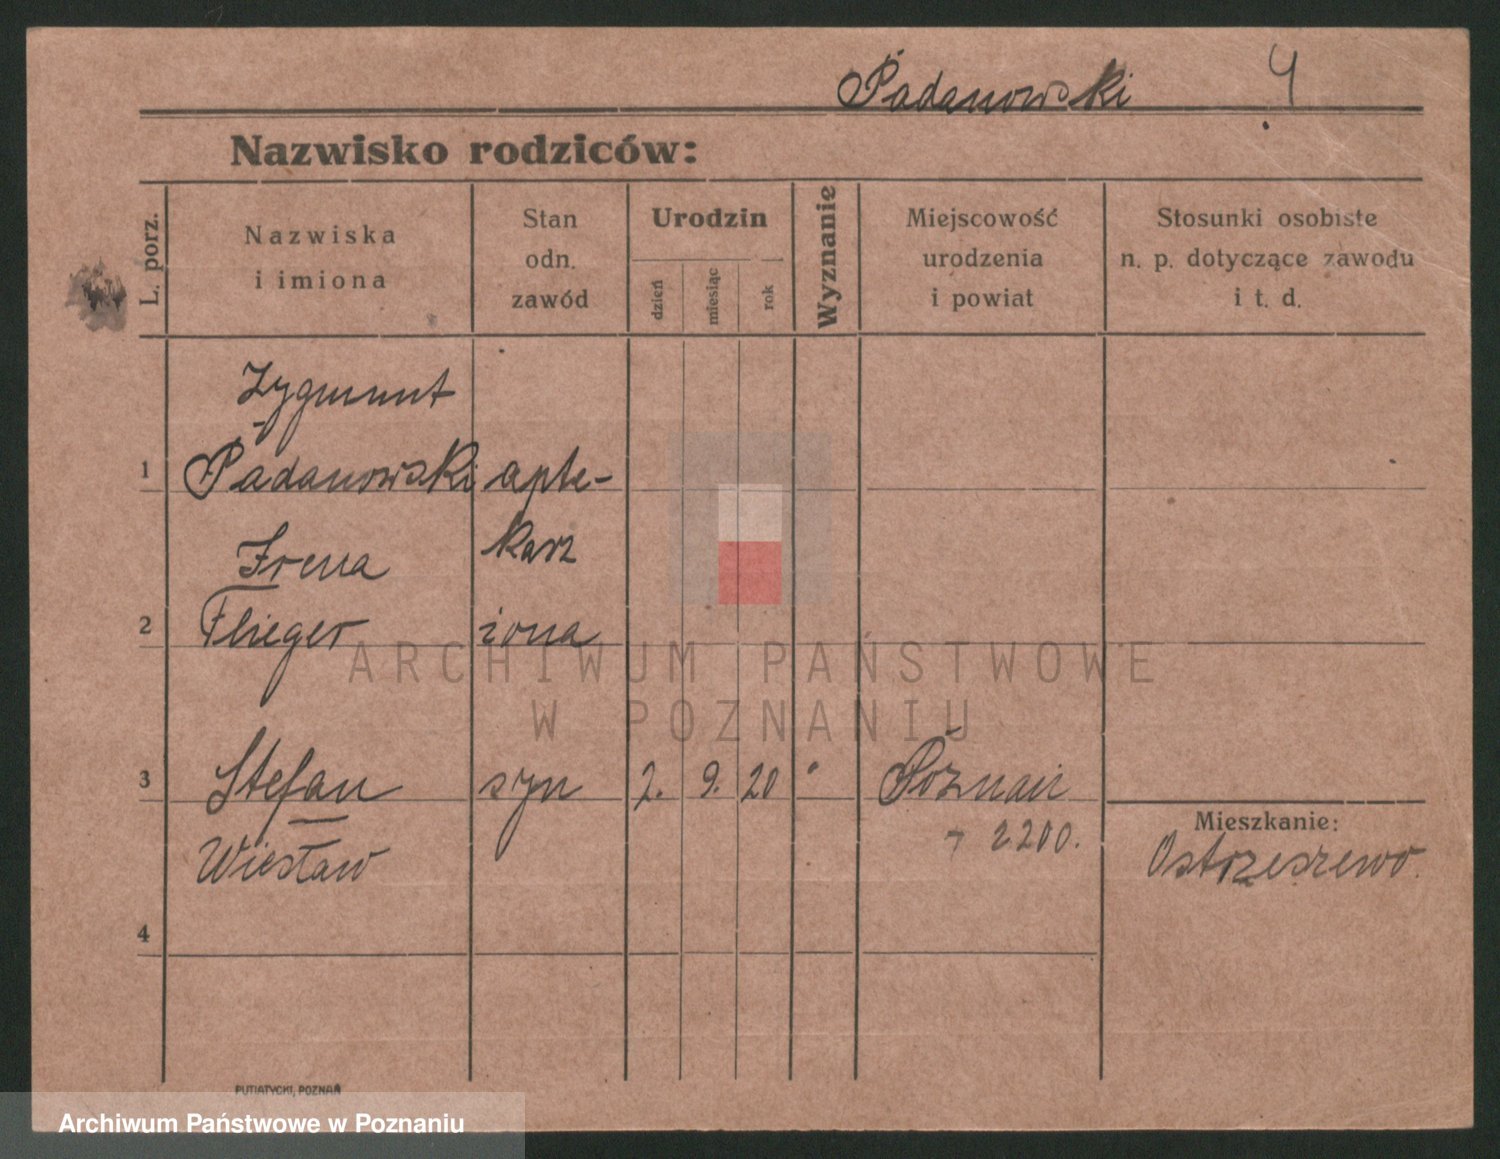 Padanowski 4
Nazwisko rodziców:
L. porz.
Nazwiska
i imiona
Stan
odn.
zawód
Urodzin
dzień
miesiąc
rok
Wyznanie
Miejscowość
urodzenia
i powiat
Stosunki osobiste
n. p. dotyczące zawodu
i t. d.
Zygmunt
1 Padanowski apte-
karz
Irena
2 Flieger żona
3 Stefan syn 2. 9. 20 " Poznań
Wiesław
2200.
Mieszkanie:
Ostrzeszewo.
4
PUTIATYCKI, POZNAŃ
ARCHIWUM PAŃSTWOWE
W POZNANIU
Archiwum Państwowe w Poznaniu